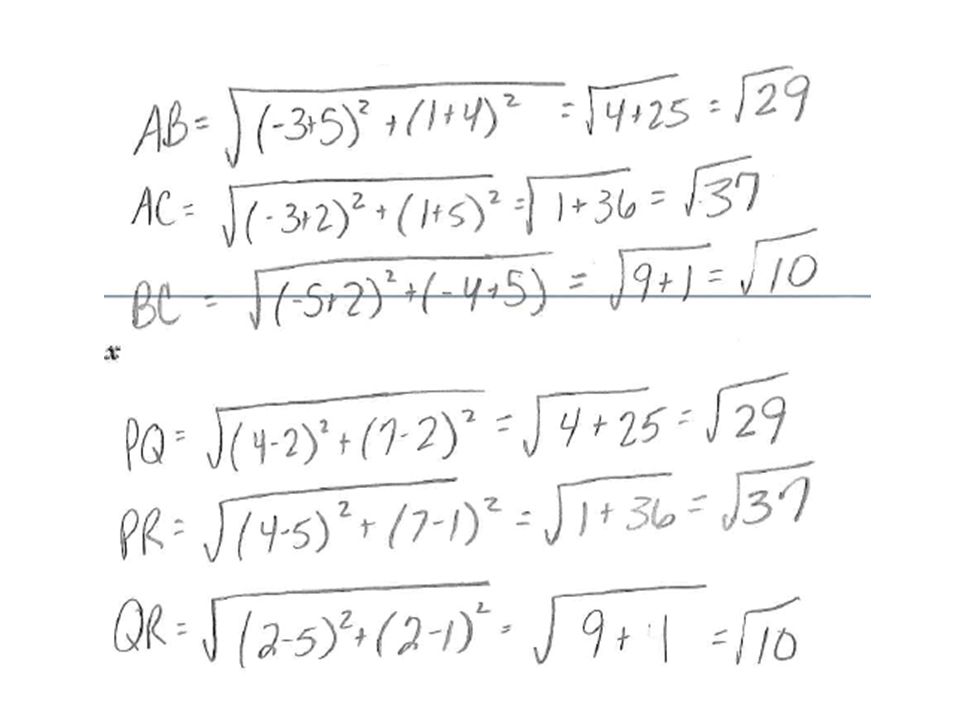 AB = √(-3+5)² + (1+4)² = √4+25 = √29
AC = √(-3+2)² + (1+5)² = √1+36 = √37
BC = √(-5+2)² + (-4+5) = √9+1 = √10
x
PQ = √(4-2)² + (7-2)² = √4+25 = √29
PR = √(4-5)² + (7-1)² = √1+36 = √37
QR = √(2-5)² + (2-1)² = √9+1 = √10